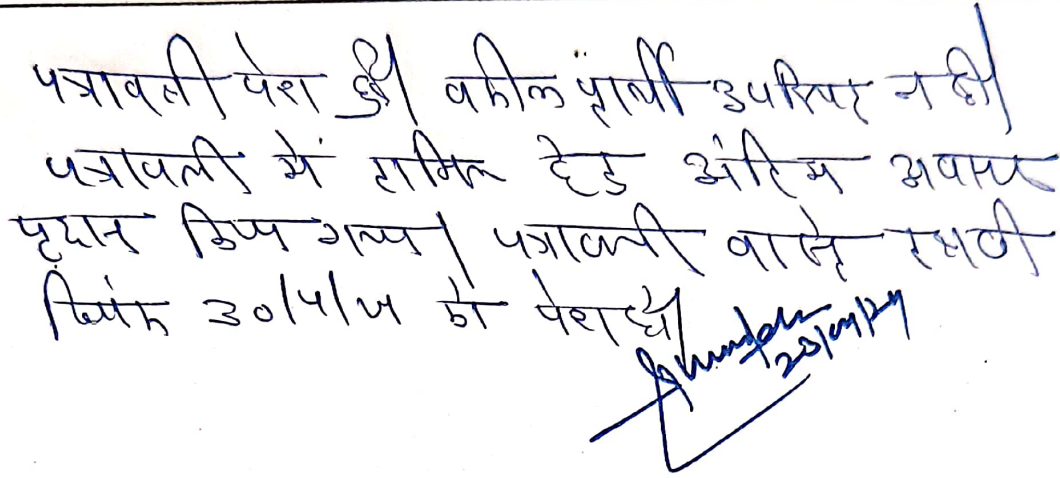 पत्रावली पेश हुई। वकील प्रार्थी उपस्थित नहीं।
पत्रावली में तामिल हेतु अंतिम अवसर
प्रदान किया गया। पत्रावली वास्ते
दिनांक 30/4/24 को पेश हो।
23/04/24